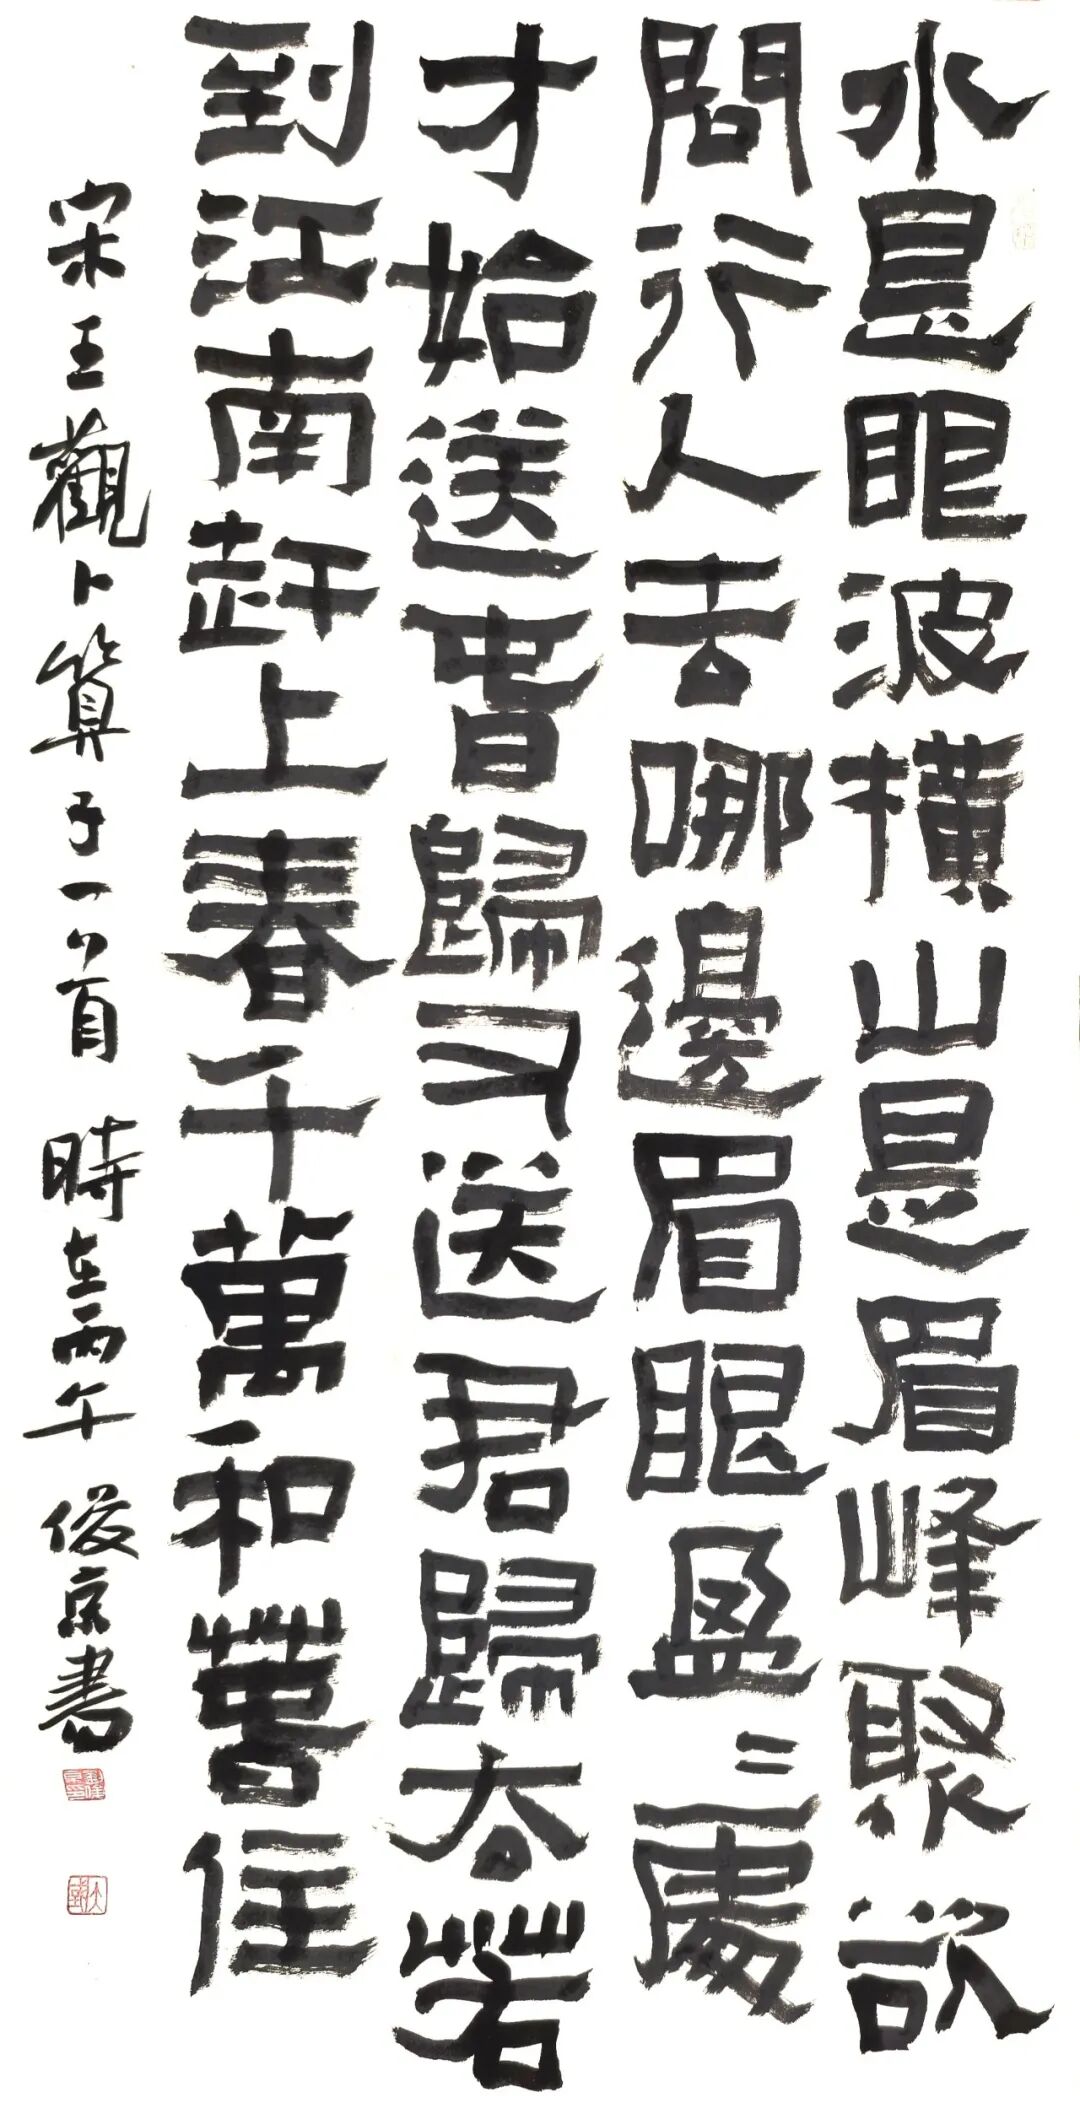 水是眼波橫山是眉峰聚欲
問行人去哪邊眉眼盈〻處
才始送春歸又送君歸去若
到江南赶上春千萬和春住
宋王觀卜算子一首 時在丙午 俊京書